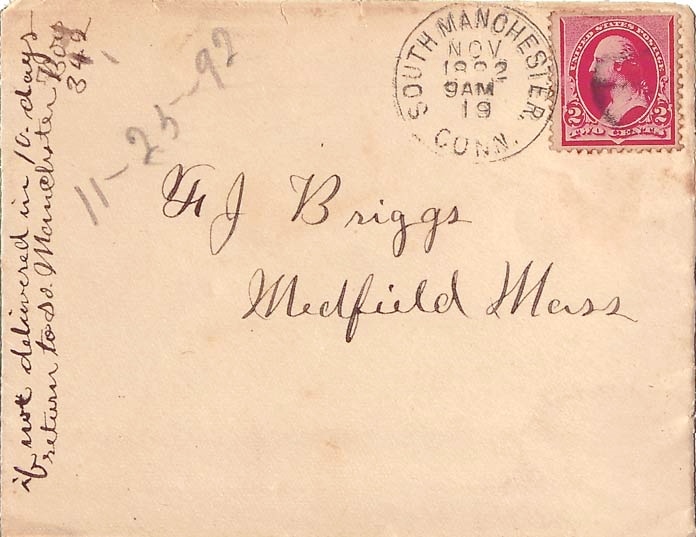 SOUTH MANCHESTER
NOV
1892
9AM
19
CONN.
UNITED STATES POSTAGE
2 2
TWO CENTS
11-25-92
F J Briggs
Medfield Mass
if not delivered in 10 days
return to So. Manchester Box
342